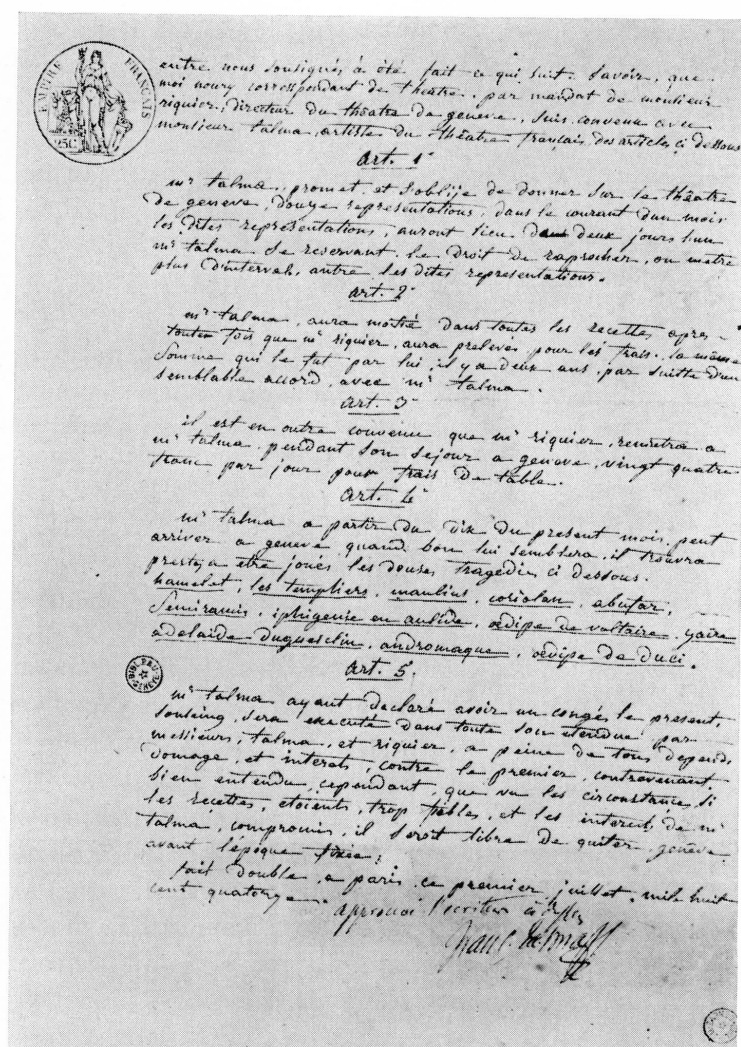 EMPIRE FRANÇAIS
25C
entre nous soussignés à été fait ce qui suit. Savoir, que
moi noury correspondant de théatre. par mandat de monsieur
riquier, directeur du théatre de geneve, suis convenu avec
monsieur talma, artiste du théatre français, des articles ci dessous
art. 1er
mr talma, promet, et s'oblije de donner sur le théatre
de geneve, douze representations, dans le courant d'un mois
les dites representations, auront lieu de deux jours l'un
mr talma se reservant le droit de raprocher, ou mettre
plus d'interval, entre les dites representations.
art. 2
mr talma, aura moitié dans toutes les recettes apres
toutes fois que mr riquier, aura prelevés pour les frais. la même
somme qui le fut par lui, il y a deux ans, par suitte d'un
semblable accord, avec mr talma.
art. 3
il est en outre convenu que mr riquier, remettra a
mr talma, pendant son sejour a geneve, vingt quatre
franc par jour pour frais de table.
art. 4
mr talma a partir du dix du present mois, peut
arriver a geneve, quand bon lui semblera, il trouvra
prets, a etre joués les douses tragedies ci dessous.
hamelet, les templiers, manlius, coriolan, abufar,
Semiramis, iphigenie en aulide, œdipe de voltaire, zaire
adelaide duguesclin, andromaque, œdipe de duci.
art. 5.
BIBL. PUB. GENEVE
mr talma ayant declaré avoir un congés le present
souseing, sera executé dans toute son etendue par
messieurs, talma, et riquier, a peine de tous depends
domage, et interets, contre le premier, contrevenant.
bien entendu, cependant, que vu les circonstances, si
les recettes, etoients, trop foibles, et les interets de mr
talma, compromis, il seroit libre de quiter geneve
avant l'epoque fixée.
fait double, a paris, ce premier juillet, mile huit
cent quatorze.
approuvé l'ecriture
talma